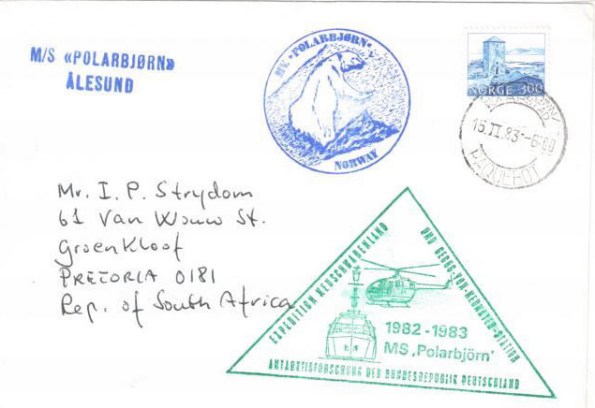 M/S «POLARBJØRN»
ÅLESUND
MV. "POLARBJØRN"
NORWAY
NORGE 300
15.II.83-6 00
PAQUEBOT
Mr. I. P. Strydom
61 Van Wouw St.
Groenkloof
PRETORIA 0181
Rep. of South Africa
EXPEDITION NEUSCHWABENLAND
UND GEORG-VON-NEUMAYER-STATION
1982-1983
MS ‚Polarbjörn'
ANTARKTISFORSCHUNG DER BUNDESREPUBLIK DEUTSCHLAND